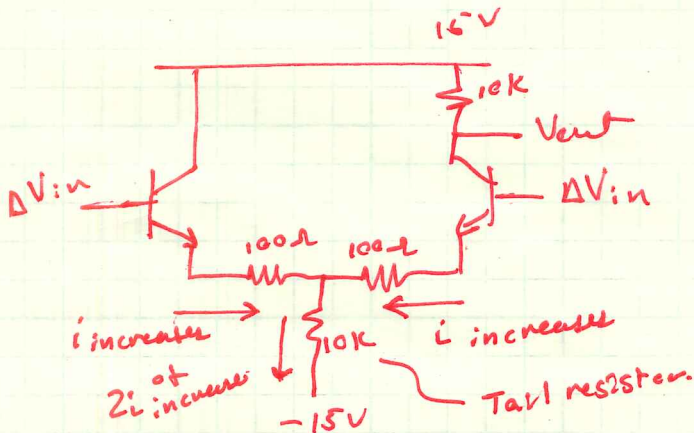 15V
10K
Vout
ΔVin
ΔVin
100Ω
100Ω
i increases
i increases
10K
2i of
increase
Tail resistor.
-15V